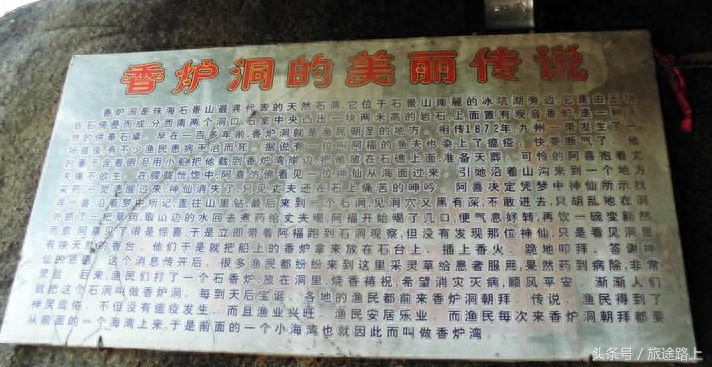 香炉洞的美丽传说
香炉洞是珠海石景山最具代表的天然石洞,它位于石景山南麓的冰坑湖旁边,它是由五块
巨石倚叠而成,分西南两个洞口,石室中央凸出一块两米高的岩石,上面置有观音香炉,是一
然的供奉石桌。早在一百多年前,香炉洞就是渔民朝圣的地方。相传1872年,九州一带发生了一
场瘟疫,有不少渔民患病不治而死。据说有一位叫阿福的渔夫也染上了瘟疫,快要断气了,他
的妻子含着眼泪用小艇把他载到香炉湾岸边,把他放在石礁上面,准备天葬。可怜的阿喜抱着丈
夫痛不欲生。在朦胧恍惚中,阿喜仿佛看见一位神仙从海面过来,引她沿着山沟来到一个地方
采药,一觉醒过来,神仙消失了,只见丈夫还在石上痛苦的呻吟。阿喜决定凭梦中神仙所示找
寻一番,沿着梦中所记,直往山里钻,最后来到一个石洞,见洞穴又黑有深,不敢进去,只胡乱地在洞
外抓了一把草药,取山边的水回去煮药给丈夫喝,阿福开始喝了几口,便气息好转,再饮一碗变豁然
而愈,阿喜见了很是惊喜,于是立即带着阿福跑到石洞观察,但没有发现那位神仙,只是看见洞里
有块天然的香台。他们于是就把船上的香炉拿来放在石台上,插上香火,跪地叩拜,答谢神
仙的恩德。这个消息传开后,很多渔民都纷纷来到这里采灵草给患者服用,果然药到病除,非常
灵验。后来,渔民们打了一个石香炉,放在洞里,烧香祷祝,希望消灾灭病,顺风平安。渐渐人们
就把这个石洞叫做香炉洞。每到天后宝诞,各地的渔民都前来香炉洞朝拜。传说,渔民得到了
神灵庇佑,不但没有瘟疫发生,而且渔业兴旺,渔民安居乐业。而渔民每次来香炉洞朝拜都要
从前面的一个海湾上来,于是前面的一个小海湾也就因此而叫做香炉湾。
头条号/旅途路上